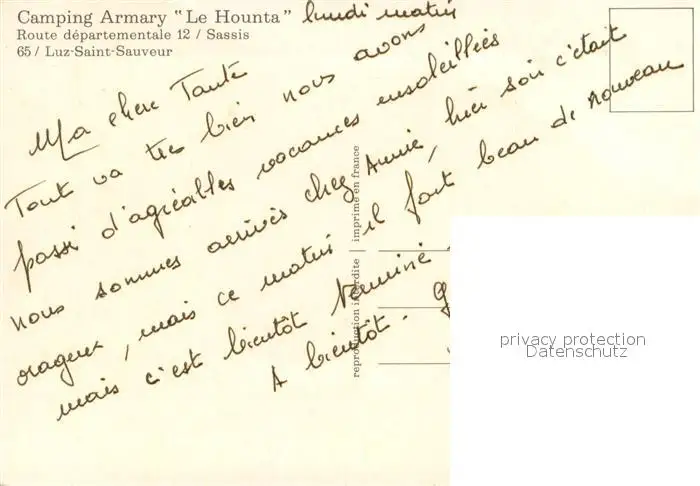 Camping Armary "Le Hounta"
Route départementale 12 / Sassis
65 / Luz-Saint-Sauveur
lundi matin
Ma chere Tante
Tout va tres bien nous avons
passé d'agréables vacances ensoleillées
nous sommes arrivés chez Annie, hier soir c'était
orageux, mais ce matin il fait beau de nouveau
mais c'est bientôt terminé
A bientôt -
reproduction interdite imprimé en france
privacy protection
Datenschutz